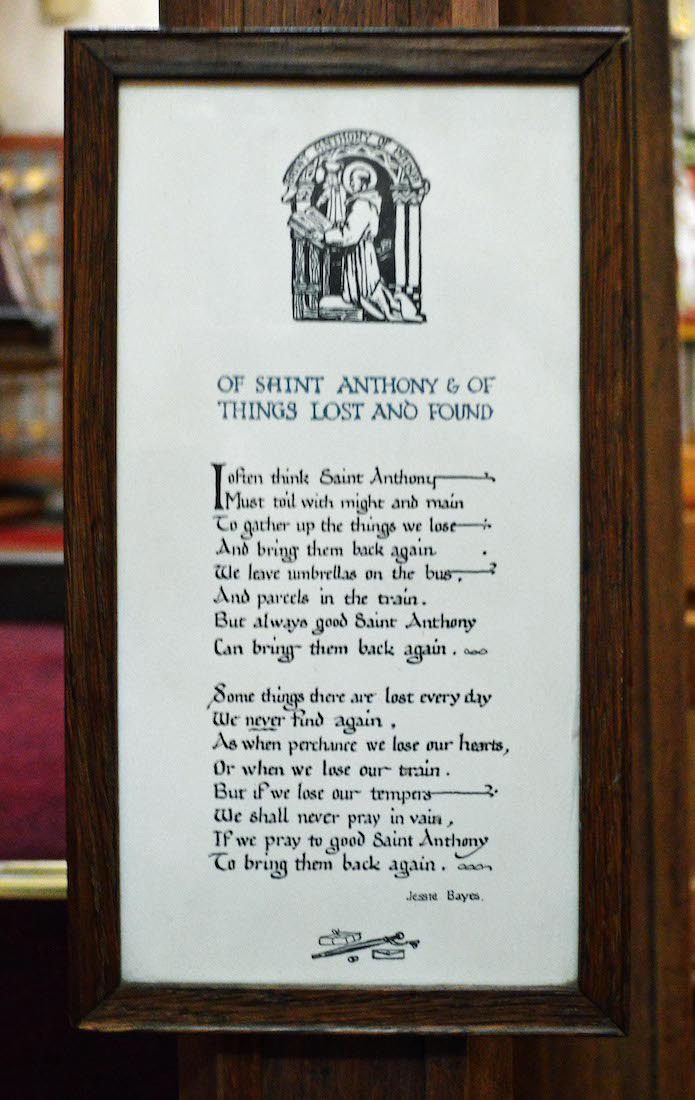 SAINT ANTHONY OF PADUA
OF SAINT ANTHONY & OF
THINGS LOST AND FOUND
I often think Saint Anthony
Must toil with might and main
To gather up the things we lose
And bring them back again
We leave umbrellas on the bus,
And parcels in the train.
But always good Saint Anthony
Can bring them back again.
Some things there are lost every day
We never find again,
As when perchance we lose our hearts,
Or when we lose our train.
But if we lose our tempers
We shall never pray in vain,
If we pray to good Saint Anthony
To bring them back again.
Jessie Bayes.